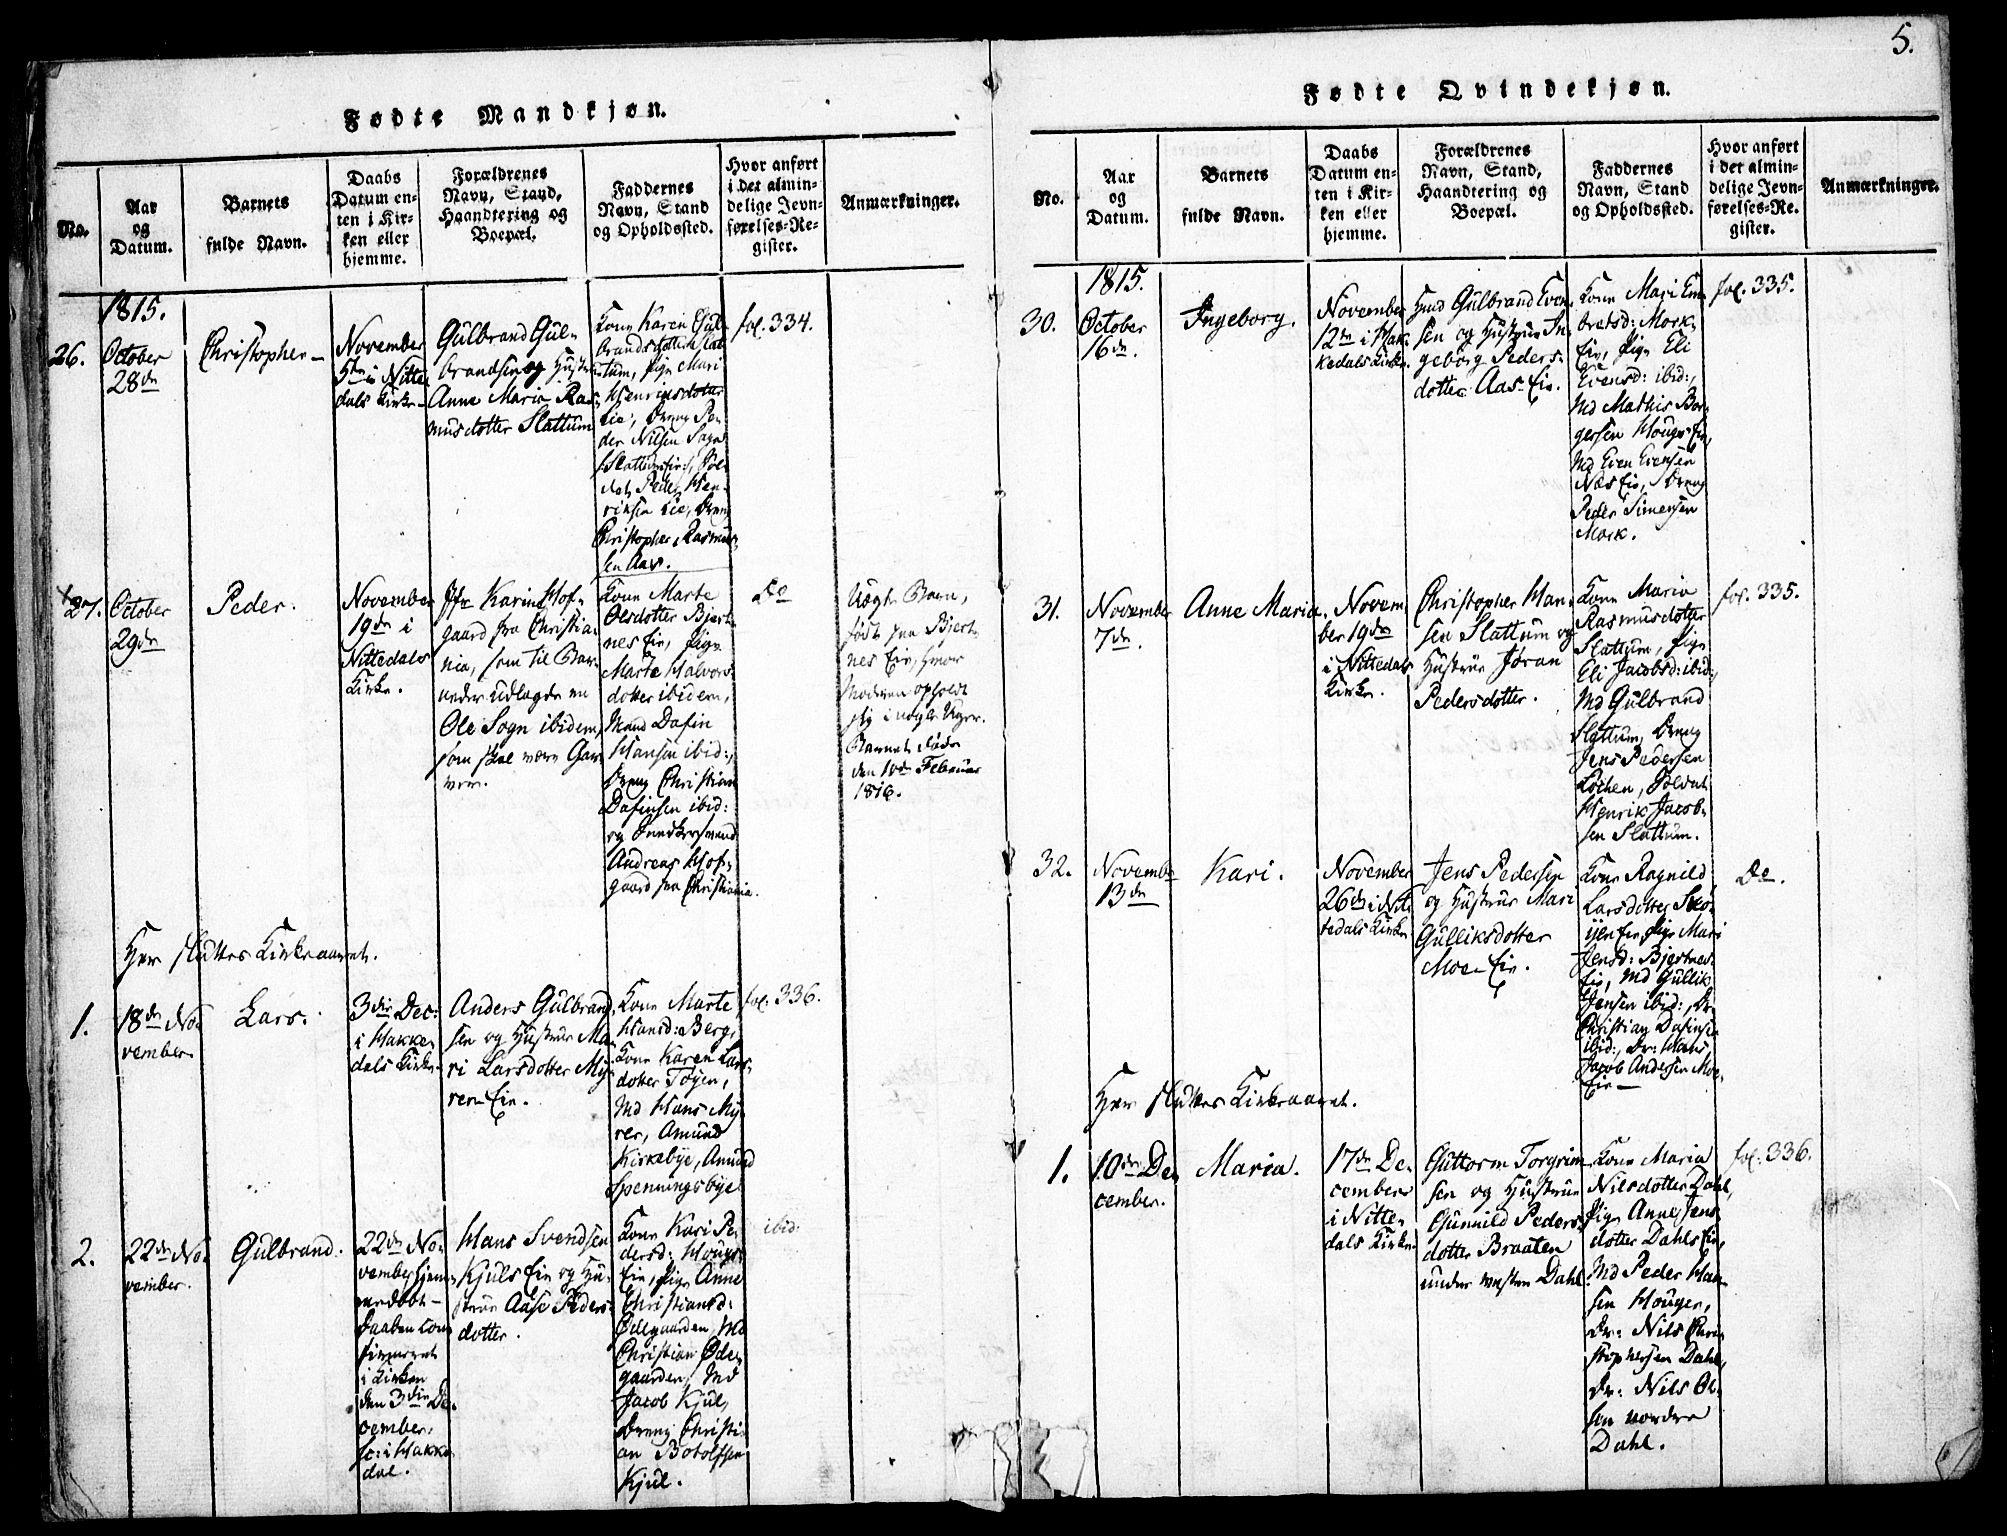 5.
Fødte Mandkjøn.
No.
Aar
og
Datum.
Barnets
fulde Navn.
Daabs
Datum en-
ten i Kir-
ken eller
hjemme.
Forældrenes
Navn, Stand,
Haandtering og
Boepæl.
Faddernes
Navn, Stand
og Opholdssted.
Hvor anført
i det almin-
delige Jevn-
førelses-Re-
gister.
Anmærkninger.
1815.
26.
October
28de
Christopher
November
5te i Nitte-
dals Kirke
Gulbrand Gul-
brandsen og Hustru
Anne Maria Ras-
musdotter Slattum
Kone Karen Gul-
brandsdotter Slat-
tum, Pige Mari
Henriksdotter
Lie, Dreng Pe-
der Nilsen
Slattum Eie,
dat Peder Hen-
riksen Lie, Dreng
Christopher Rasmus-
sen Aas.
fol. 334.
27.
October
29de
Peder.
November
19de i
Nittedals
Kirke.
Jfr Karine Hof-
gaard fra Christia-
nia, som til Bar-
nefader udlagde en
Ole Sogn ibidem,
som skal være Gar-
ver.
Kone Marte
Olsdotter Bjert-
nes Eie, Pige
Marte Halvors-
dotter ibidem,
Mand Dafin
Hansen ibid:,
Dreng Christian
Dafinsen ibid:
og
Andreas Hof-
gaard fra Christiania.
Do
Uægte Barn,
født paa Bjert-
nes Eie, hvor
Moderen opholdt
sig i nogle Uger.
Barnet døde
den 10de Februar
1816.
Her sluttes Kirkeaaret.
1.
18de No-
vember
Lars.
3die Dec:
i Hakke-
dals Kirke
Anders Gulbrand-
sen og Hustrue Ma-
ri Larsdotter My-
rer Eie.
Kone Marte
Hansd: Berg,
Kone Karen Lars-
dotter Tøyen,
Md Hans My-
rer, Amund
Kirkebye, Amund
Spenningsbye
fol. 336.
2.
22de No-
vember.
Gulbrand.
22de No-
vember hjem-
medøbt
Daaben con-
firmeret
i Kirken
den 3die De-
cember,
sc: i Hakke-
dal.
Hans Svendsen
Kjuls Eie og Hu-
strue Aase Peders-
dotter.
Kone Kari Pe-
dersd: Houger
Eie, Pige Anne
Christiansd:
Ødegaarden, Md
Christian Øde-
gaarden, Md
Jacob Kjul,
Dreng Christi-
an Botolfsen
Kjul.
ibid.
Fødte Qvindekjøn.
No.
Aar
og
Datum.
Barnets
fulde Navn.
Daabs
Datum en-
ten i Kir-
ken eller
hjemme.
Forældrenes
Navn, Stand,
Haandtering og
Boepæl.
Faddernes
Navn, Stand
og Opholdssted.
Hvor anført
i det almin-
delige Jevn-
førelses-Re-
gister.
Anmærkninger.
1815.
30.
October
16de.
Ingeborg.
November
12te i Hak-
kedals Kirke.
Gulbrand Even-
sen og Hustrue In-
geborg Peders-
dotter Aas Eie.
Kone Mari Em-
bretsd: Mork-
Eie, Pige Eli
Evensd: ibid:,
Md Mathis Bør-
gersen Houger Eie,
Md Even Evensen
Næs Eie, Dreng
Peder Simensen
Mork.
fol. 335.
31.
November
7de.
Anne Maria.
Novem-
ber 19de
i Nittedals
Kirke.
Christopher Han-
sen Slattum og
Hustrue Jøran
Pedersdotter.
Kone Maria
Rasmusdotter
Slattum, Pige
Eli Jacobsd: ibid:,
Md Gulbrand
Slattum, Dreng
Jens Pedersen
Løchen, Soldat
Henrik Jacob-
sen Slattum.
fol. 335.
32.
November
13de
Kari.
November
26de i Nit-
tedals Kirke
Jens Pedersen
og Hustrue Mari
Gulliksdotter
Moe Eie.
Kone Ragnild
Larsdotter Skø-
ijen Eie, Pige Mari
Jensd: Bjertnes
Eie, Md Gullik
Jensen ibid:, Dr:
Christian Dafinsen
ibid:, Dr: Hans
Jacob Andersen Moe
Eie
Do.
Her sluttes Kirkeaaret.
1.
10de De-
cember.
Maria.
17de De-
cember
i Nitte-
dals Kirke
Guttorm Torgrim-
sen og Hustrue
Gunnild Peders-
dotter Braaten
under vestre Dahl
Kone Maria
Nilsdotter Dahl,
Pige Anne Jens-
dotter Dahls Eie,
Md Peder Han-
sen Houger,
Dr: Nils Chri-
stophersen Dahl,
Dr: Nils Ol-
sen nordre
Dahl.
fol. 336.